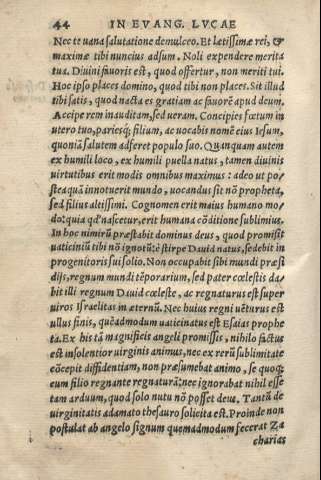 44 IN EVANG. LVCAE
Nec te uana salutatione demulceo. Et lætissimæ rei, &
maximæ tibi nuncius adsum. Noli expendere merita
tua. Diuini fauoris est, quod offertur, non meriti tui.
Hoc ipso places domino, quod tibi non places. Sit illud
tibi satis, quod nacta es gratiam ac fauorē apud deum.
Accipe rem inauditam, sed ueram. Concipies fœtum in
utero tuo, pariesq; filium, ac uocabis nomē eius Iesum,
quoniā salutem adferet populo suo. Quanquam autem
ex humili loco, ex humili puella natus, tamen diuinis
uirtutibus erit modis omnibus maximus: adeo ut po/
stea quā innotuerit mundo, uocandus sit nō propheta,
sed filius altissimi. Cognomen erit maius humano mo/
do: quia qđ nascetur, erit humana cōditione sublimius.
In hoc nimirū præstabit dominus deus, quod promisit
uaticiniū tibi nō ignotū: è stirpe Dauid natus, sedebit in
progenitoris sui solio. Non occupabit sibi mundi præsi
dijs, regnum mundi tēporarium, sed pater cœlestis da/
bit illi regnum Dauid cœleste, ac regnaturus est super
uiros Israelitas in æternū. Nec huius regni uēturus est
ullus finis, quēadmodum uaticinatus est Esaias prophe
ta. Ex his tā magnificis angeli promissis, nihilo factus
est insolentior uirginis animus, nec ex rerū sublimitate
cōcepit diffidentiam, non præsumebat animo, se quoq;
cum filio regnante regnaturā: nec ignorabat nihil esse
tam arduum, quod solo nutu nō posset deus. Tantū de
uirginitatis adamato thesauro solicita est. Proinde non
postulat ab angelo signum quemadmodum fecerat Za
charias